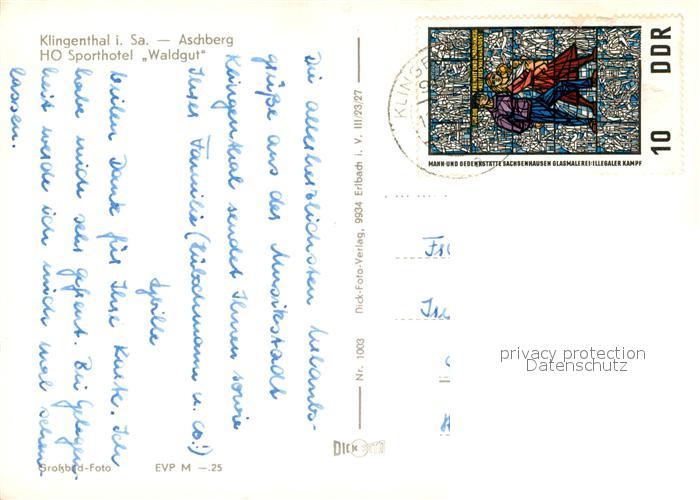 Klingenthal i. Sa. — Aschberg
HO Sporthotel „Waldgut"
Die allerherzlichsten Urlaubs-
grüße aus der Musikstadt
Klingenthal sendet Ihnen sowie
Ihrer Familie (Lübschmann u. Co!)
Sybille
Vielen Dank für Ihre Karte. Ich
habe mich sehr gefreut. Bei Gelegen-
heit werde ich mich mal sehen
lassen.
Großbild-Foto EVP M —.25
Nr. 1003 Dick-Foto-Verlag, 9934 Erlbach i. V. III/23/27
DICK
KLINGE
MAHN- UND GEDENKSTÄTTE SACHSENHAUSEN GLASMALEREI: ILLEGALER KAMPF
10 DDR
privacy protection
Datenschutz